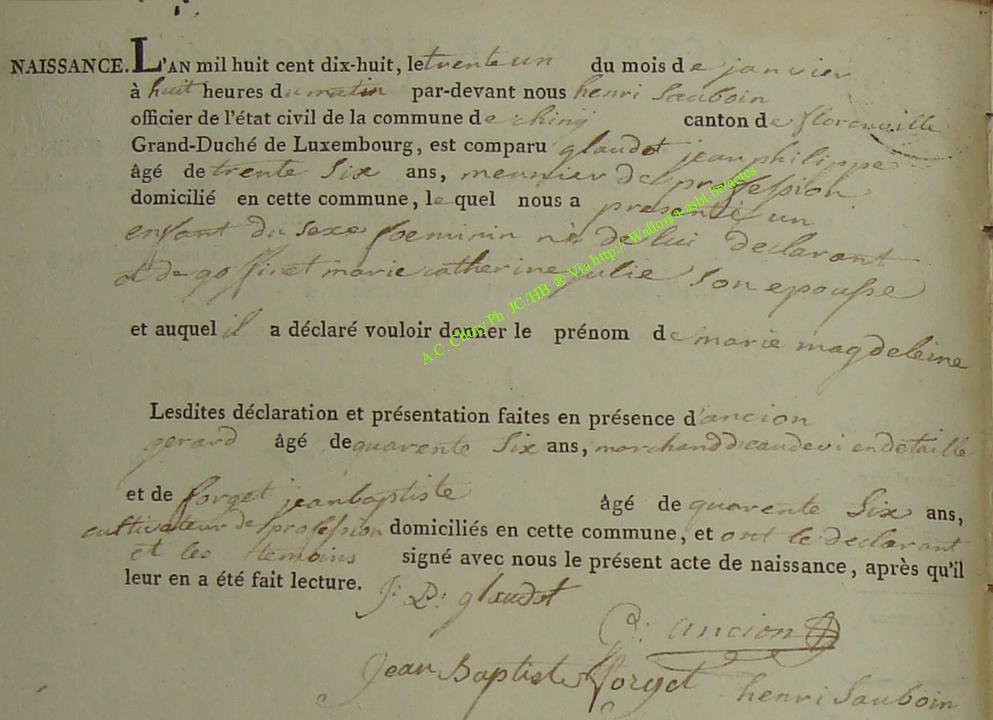 NAISSANCE. L'AN mil huit cent dix-huit, le trente un du mois de janvier
à huit heures du matin par-devant nous henri Sauboin
officier de l'état civil de la commune de chiny canton de florenville
Grand-Duché de Luxembourg, est comparu glaudot jean philippe
âgé de trente Six ans, meunier de profession
domicilié en cette commune, le quel nous a presenté un
enfant du sexe foeminin né de lui declarant
et de goffinet marie catherine julie Son epouse
et auquel il a déclaré vouloir donner le prénom de marie magdeleine
Lesdites déclaration et présentation faites en présence d'ancion
gerard âgé de quarente Six ans, marchand d'eaudevi en detaille
et de forget jean baptiste âgé de quarente Six ans,
cultivateur de profession domiciliés en cette commune, et ont le declarant
et les temoins signé avec nous le présent acte de naissance, après qu'il
leur en a été fait lecture.
J: P: glaudot
G: ancion
Jean Baptiste forget henri Sauboin
A.C. Chiny Ph. JC/HB ® Via http://Wallonia-asbl.be/actes